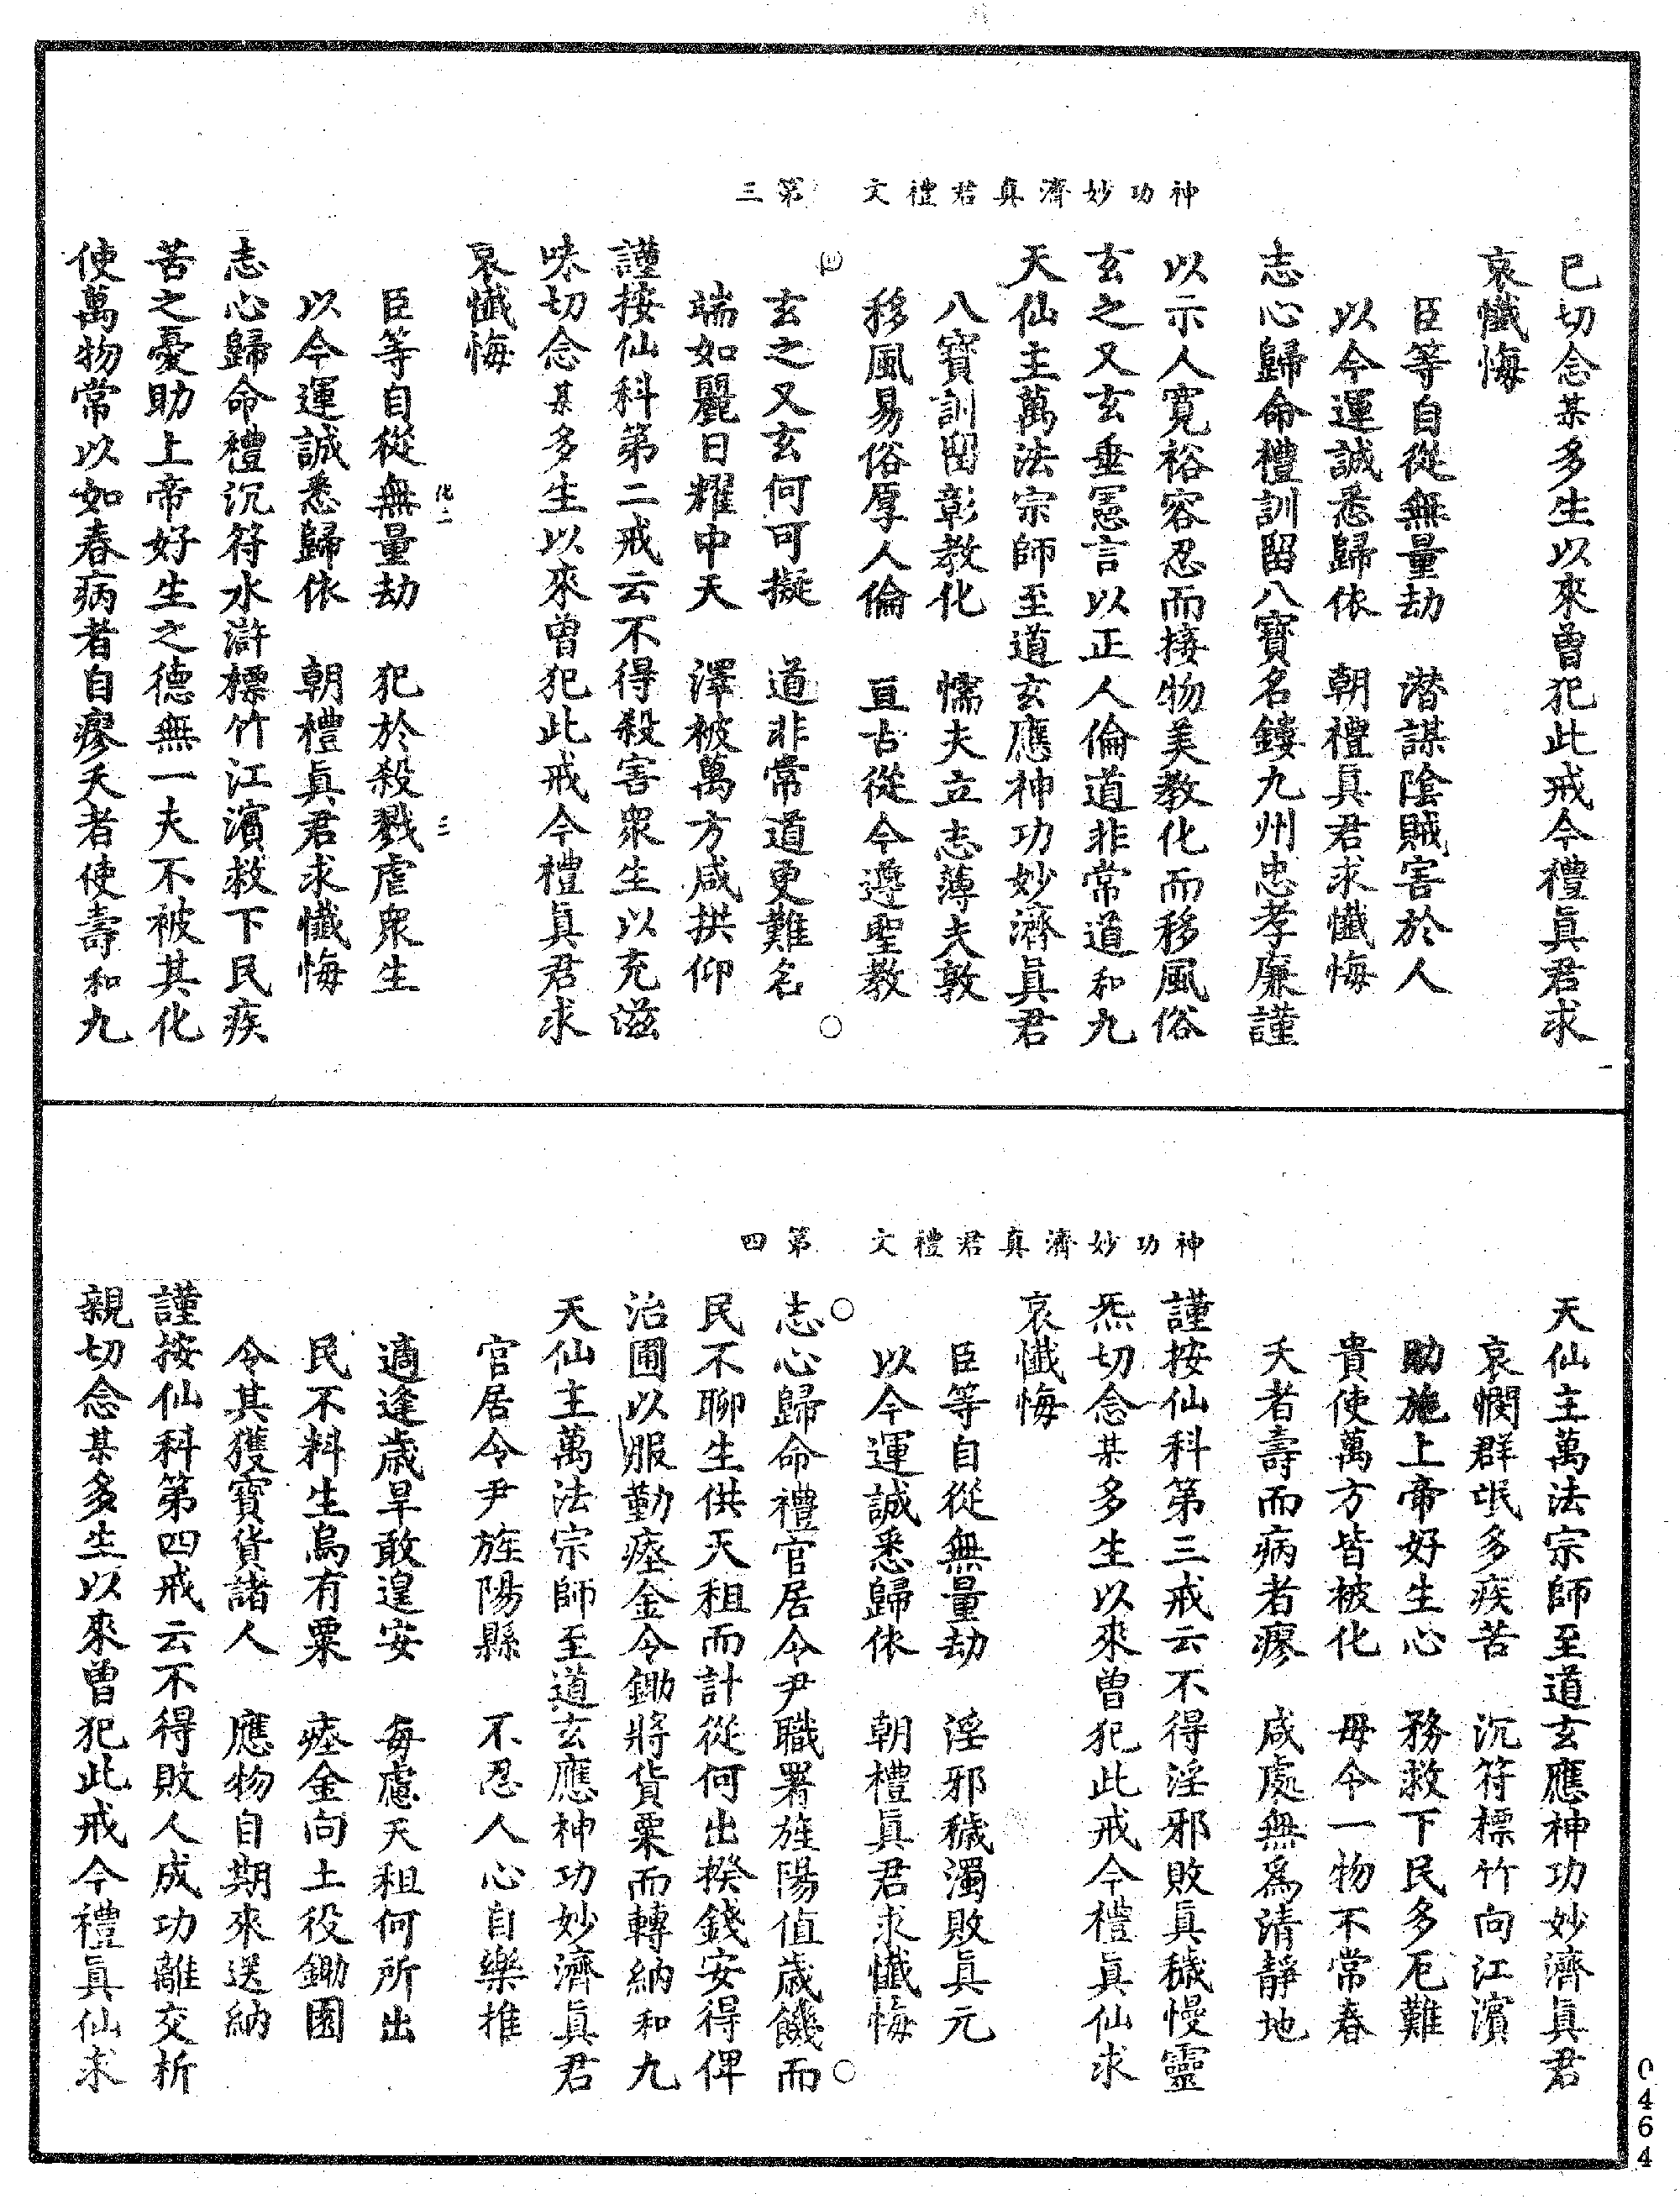 神功妙濟真君禮文　第三
已切念某多生以來曾犯此戒今禮眞君求
哀懺悔
臣等自從無量劫　潛謀陰賊害於人
以今運誠悉歸依　朝禮眞君求懺悔
志心歸命禮訓留八寶名鏤九州忠孝廉謹
以示人寬裕容忍而接物美教化而移風俗
玄之又玄垂憲言以正人倫道非常道和九
天仙主萬法宗師至道玄應神功妙濟眞君
八寶訓留彰教化　懦夫立志薄夫敦
移風易俗厚人倫　亘古從今遵聖教
玄之又玄何可擬　道非常道更難名
端如麗日耀中天　澤被萬方咸拱仰
謹按仙科第二戒云不得殺害衆生以充滋
味切念某多生以來曾犯此戒今禮眞君求
哀懺悔
臣等自從無量劫　犯於殺戮虐衆生
以今運誠悉歸依　朝禮眞君求懺悔
志心歸命禮沉符水滸標竹江濱救下民疾
苦之憂助上帝好生之德無一夫不被其化
使萬物常以如春病者自瘳夭者使壽和九
神功妙濟真君禮文　第四
天仙主萬法宗師至道玄應神功妙濟眞君
哀憫群氓多疾苦　沉符標竹向江濱
助施上帝好生心　務救下民多厄難
貴使萬方皆被化　毋令一物不常春
夭者壽而病者瘳　咸處無爲清靜地
謹按仙科第三戒云不得淫邪敗眞穢慢靈
炁切念某多生以來曾犯此戒今禮眞仙求
哀懺悔
臣等自從無量劫　淫邪穢濁敗眞元
以今運誠悉歸依　朝禮眞君求懺悔
志心歸命禮官居令尹職署旌陽值歲饑而
民不聊生供天租而計從何出揆錢安得俾
治圃以服勤瘞金令鋤將貨粟而轉納和九
天仙主萬法宗師至道玄應神功妙濟眞君
官居令尹旌陽縣　不忍人心自樂推
適逢歲旱敢遑安　每慮天租何所出
民不料生烏有粟　瘞金向土役鋤園
令其獲寶貨諸人　應物自期來送納
謹按仙科第四戒云不得敗人成功離交析
親切念某多生以來曾犯此戒今禮眞仙求
0464